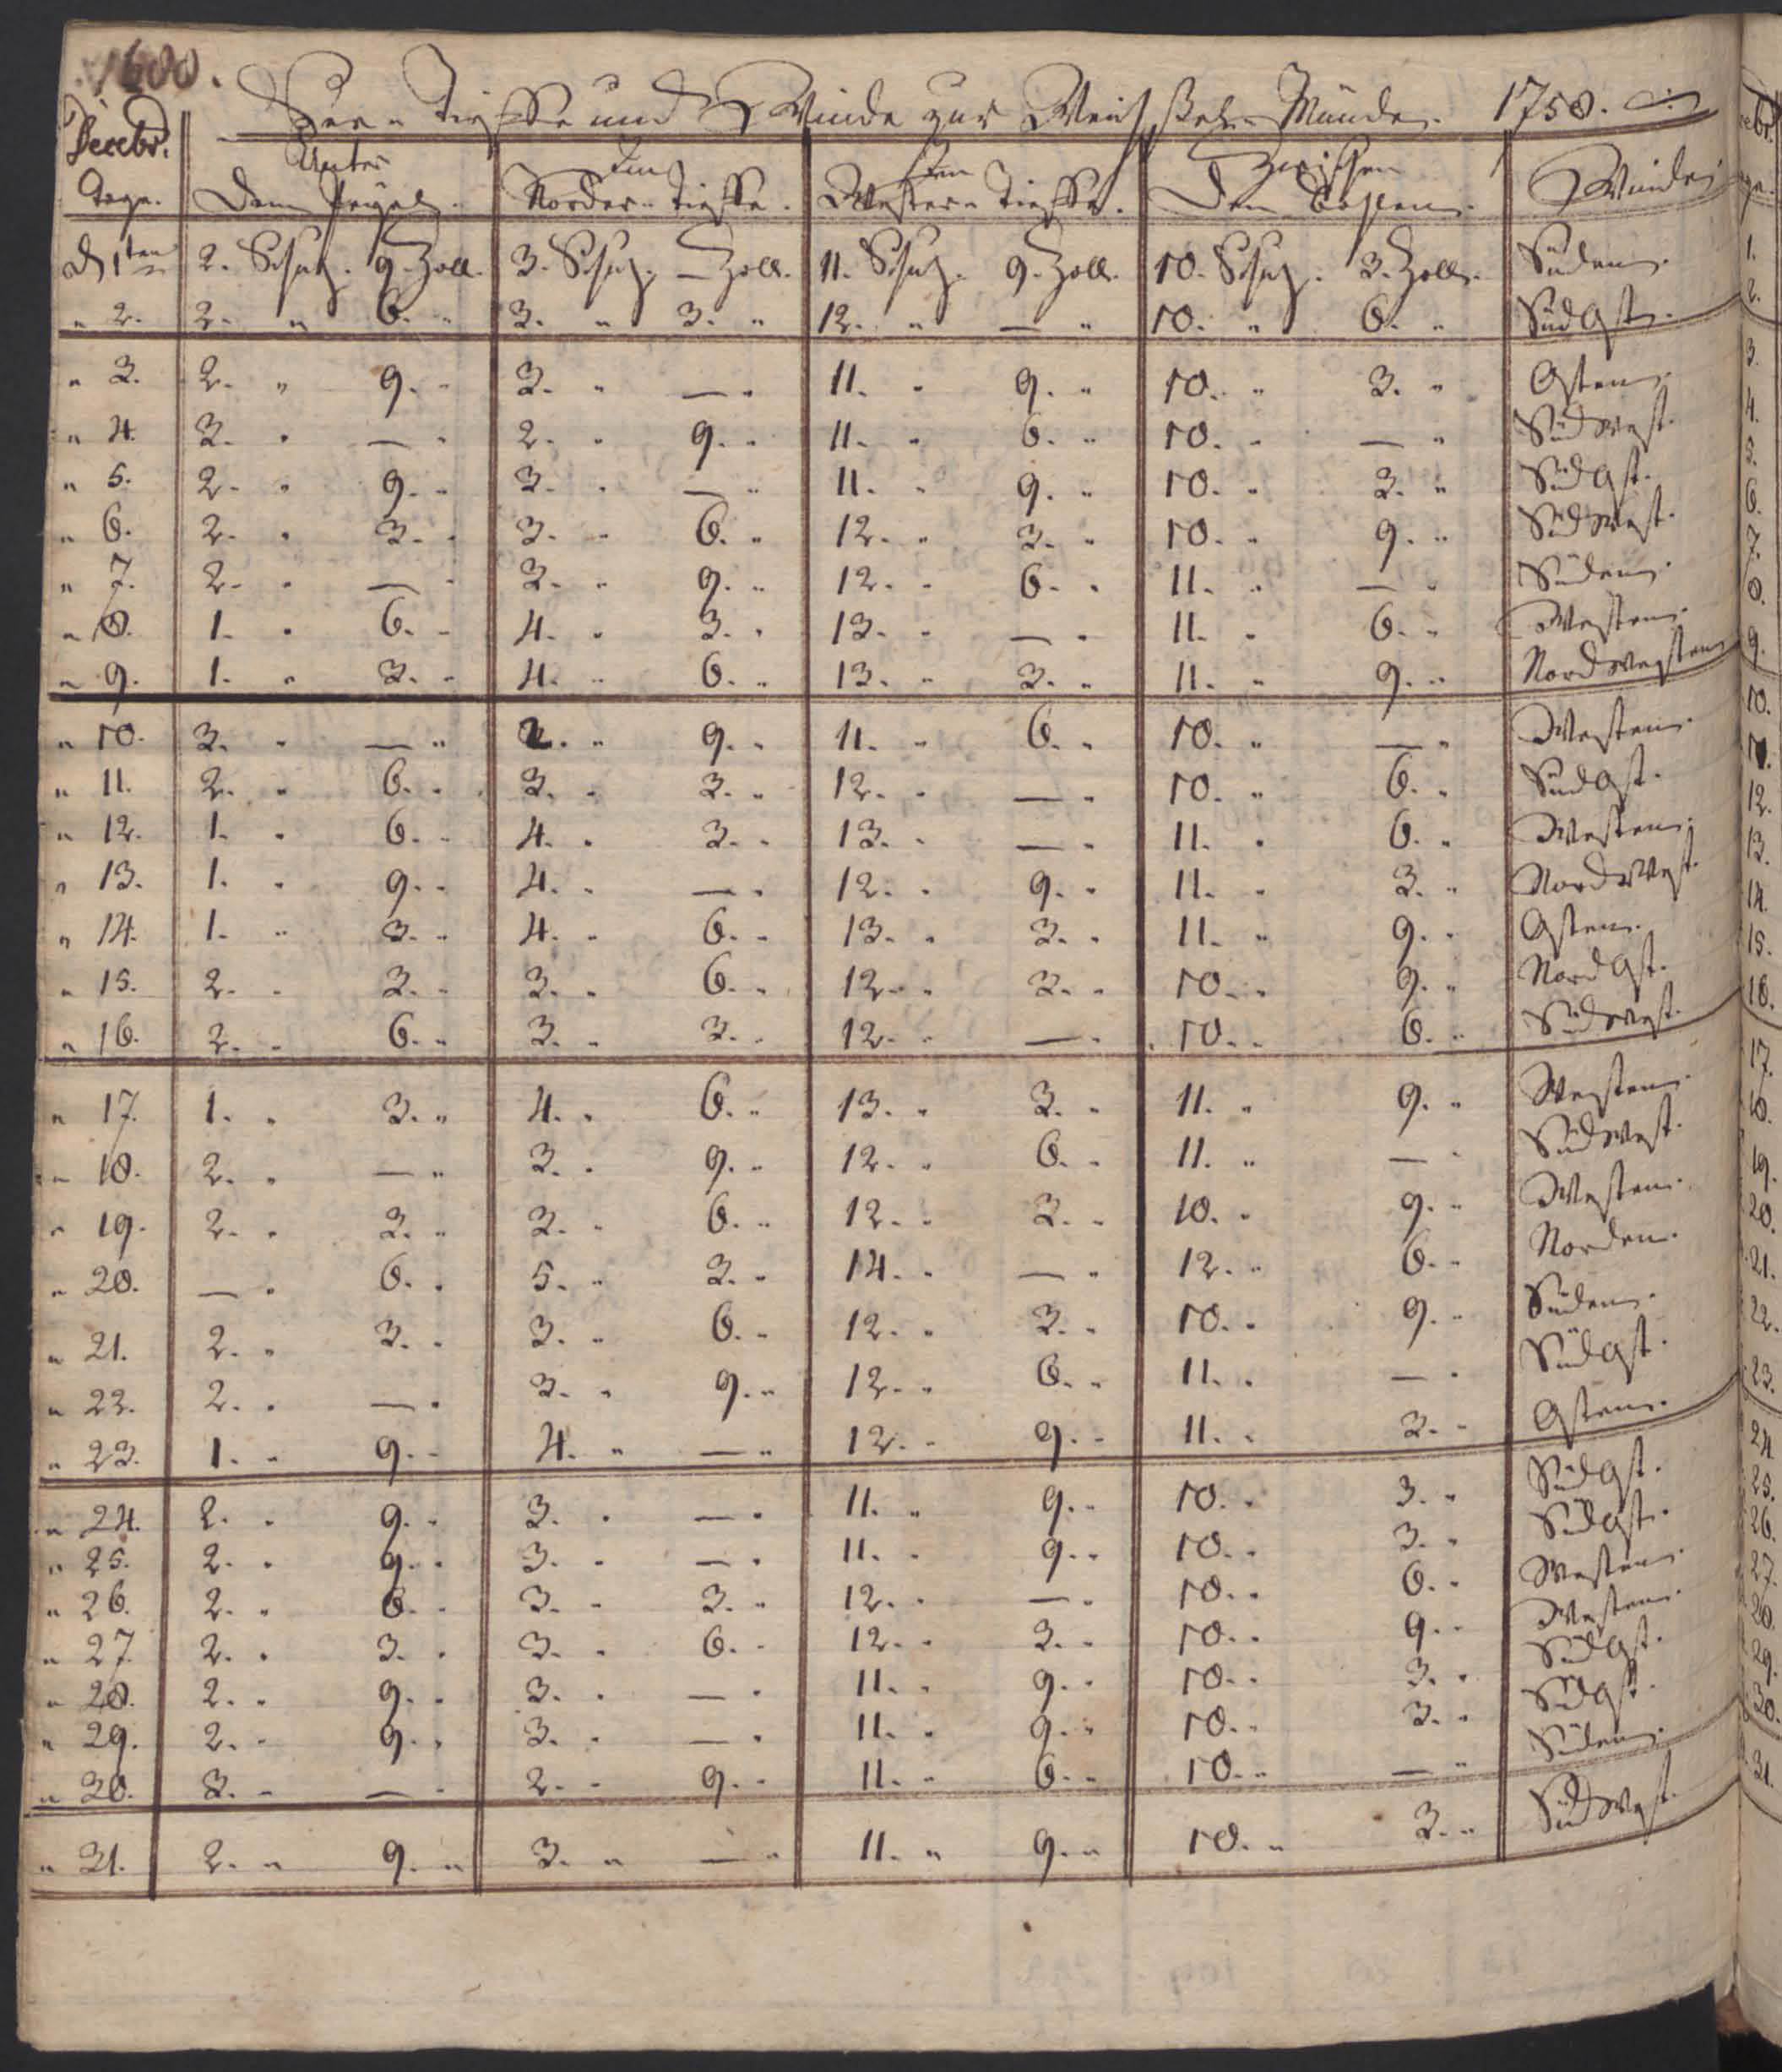 1600.
See- Tieffe und Winde zur Weichßel-Münde. 1758.
Decebr. Tage. | Unter Dem Pegel. | Im Norder-Tieffe. | Im Wester-Tieffe. | Zwischen Den Bollen. | Winde.
D 1ten 2. Schuh. 9. Zoll. 3. Schuh. — Zoll. 11. Schuh. 9. Zoll. 10. Schuh. 3. Zoll. Süden.
" 2. 2. " 6. " 3. " 3. " 12. " — " 10. " 6. " SüdOst.
" 3. 2. " 9. " 3. " — " 11. " 9. " 10. " 3. " Osten.
" 4. 3. " — " 2. " 9. " 11. " 6. " 10. " — " Südwest.
" 5. 2. " 9. " 3. " — " 11. " 9. " 10. " 3. " SüdOst.
" 6. 2. " 3. " 3. " 6. " 12. " 3. " 10. " 9. " Südwest.
" 7. 2. " — " 3. " 9. " 12. " 6. " 11. " — " Süden.
" 8. 1. " 6. " 4. " 3. " 13. " — " 11. " 6. " Westen.
" 9. 1. " 3. " 4. " 6. " 13. " 3. " 11. " 9. " Nordwesten
" 10. 3. " — " 2. " 9. " 11. " 6. " 10. " — " Westen.
" 11. 2. " 6. " 3. " 3. " 12. " — " 10. " 6. " SüdOst.
" 12. 1. " 6. " 4. " 3. " 13. " — " 11. " 6. " Westen.
" 13. 1. " 9. " 4. " — " 12. " 9. " 11. " 3. " NordWest.
" 14. 1. " 3. " 4. " 6. " 13. " 3. " 11. " 9. " Osten.
" 15. 2. " 3. " 3. " 6. " 12. " 3. " 10. " 9. " NordOst.
" 16. 2. " 6. " 3. " 3. " 12. " — " 10. " 6. " Südwest.
" 17. 1. " 3. " 4. " 6. " 13. " 3. " 11. " 9. " Westen.
" 18. 2. " — " 3. " 9. " 12. " 6. " 11. " — " Südwest.
" 19. 2. " 3. " 3. " 6. " 12. " 3. " 10. " 9. " Westen.
" 20. — " 6. " 5. " 3. " 14. " — " 12. " 6. " Norden.
" 21. 2. " 3. " 3. " 6. " 12. " 3. " 10. " 9. " Süden.
" 22. 2. " — " 3. " 9. " 12. " 6. " 11. " — " SüdOst.
" 23. 1. " 9. " 4. " — " 12. " 9. " 11. " 3. " Osten.
" 24. 2. " 9. " 3. " — " 11. " 9. " 10. " 3. " SüdOst.
" 25. 2. " 9. " 3. " — " 11. " 9. " 10. " 3. " SüdOst.
" 26. 2. " 6. " 3. " 3. " 12. " — " 10. " 6. " Westen.
" 27. 2. " 3. " 3. " 6. " 12. " 3. " 10. " 9. " Westen.
" 28. 2. " 9. " 3. " — " 11. " 9. " 10. " 3. " SüdOst.
" 29. 2. " 9. " 3. " — " 11. " 9. " 10. " 3. " SüdOst.
" 30. 3. " — " 2. " 9. " 11. " 6. " 10. " — " Süden.
" 31. 2. " 9. " 3. " — " 11. " 9. " 10. " 3. " Südwest.
1.
2.
3.
4.
5.
6.
7.
8.
9.
10.
11.
12.
13.
14.
15.
16.
17.
18.
19.
20.
21.
22.
23.
24
25.
26.
27.
28.
29.
30.
31.